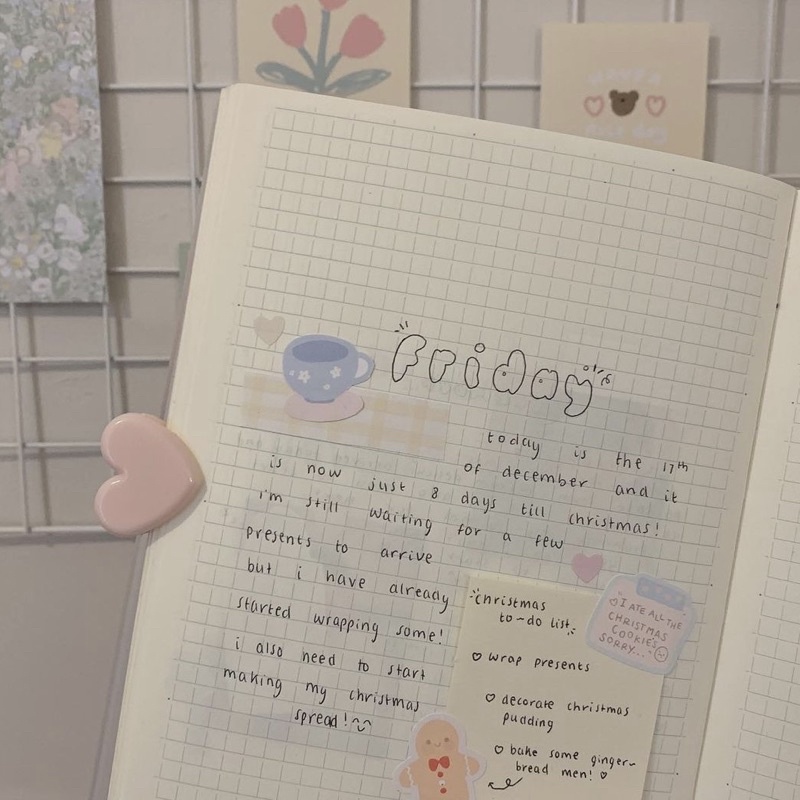 Friday
today is the 17th
of december and it
is now just 8 days till christmas!
i'm still waiting for a few
presents to arrive
but i have already
started wrapping some!
i also need to start
making my christmas
spread!
christmas
to-do list
wrap presents
decorate christmas
pudding
bake some ginger-
bread men!
I ATE ALL THE
CHRISTMAS
COOKIES
SORRY...